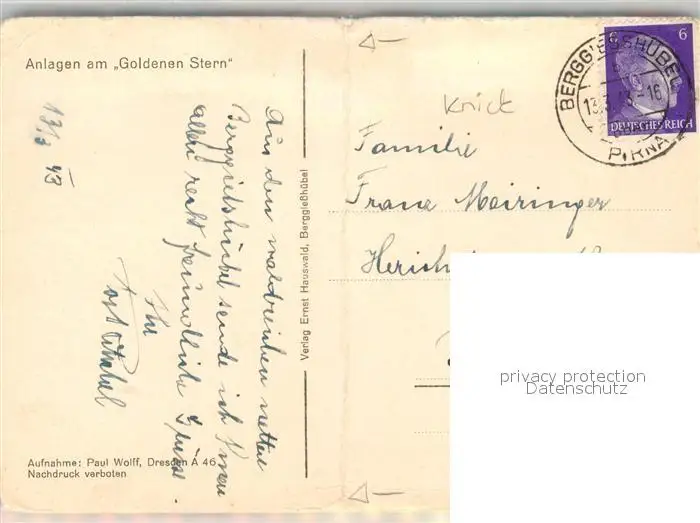 Anlagen am „Goldenen Stern“
13/3 43
Aus dem waldreichen netten
Berggießhübel sende ich Ihnen
allen recht freundliche Grüße.
Ihr
Verlag Ernst Hauswald, Berggießhübel
Aufnahme: Paul Wolff, Dresden A 46
Nachdruck verboten
Knick
Familie
Franz Meiringer
BERGGIESSHÜBEL
PIRNA
6
DEUTSCHES REICH
privacy protection
Datenschutz